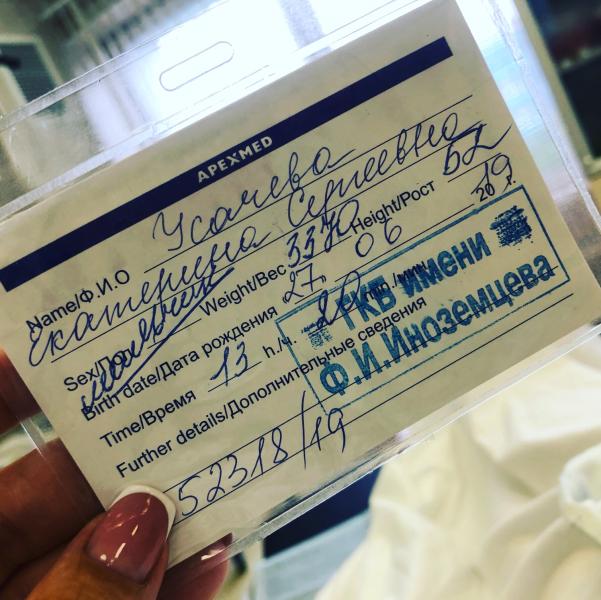 APEXMED
Name/Ф.И.О Усачева
Екатерина Сергеевна
Sex/Пол мальчик Weight/Вес 3370 Height/Рост 52
Birth date/Дата рождения 27 06 2019 г.
Time/Время 13 h./ч. 20 min./мин.
Further details/Дополнительные сведения
ГКБ имени
Ф.И.Иноземцева
52318/19